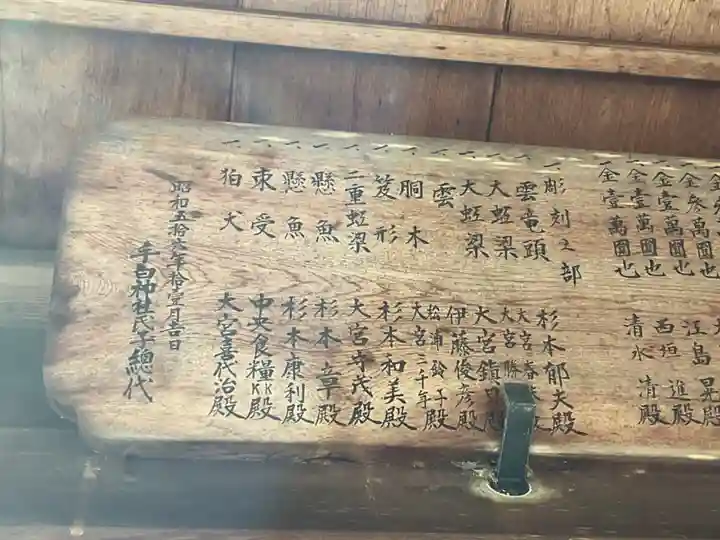 金
一金参萬圓也 江島晃殿
一金壹萬圓也 西垣進殿
一金壹萬圓也 清水清殿
彫刻之部
一雲竜頭 杉本郁夫殿
一大虹梁 大宮
一大虹梁 大宮鎮
一雲 伊藤俊彦殿
松浦鈴子殿
一胴木 大宮三千年殿
一笈形 杉本和美殿
一二重虹梁 大宮守茂殿
一懸魚 杉本章殿
一懸魚 杉本康利殿
一束受 中央食糧KK殿
一狛犬 大宮喜代治殿
昭和五拾六年拾壹月吉日
手白神社氏子總代